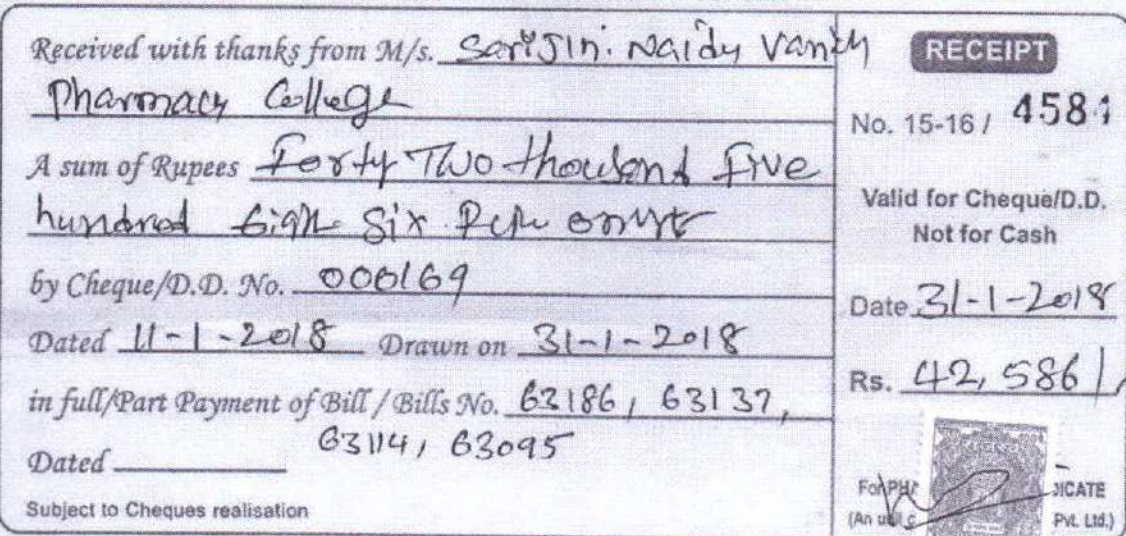 Received with thanks from M/s. Sarijin. Naidu Vanith
Pharmacy College
A sum of Rupees Forty Two thousand Five
hundred Eigh Six only
by Cheque/D.D. No. 000169
Dated 11-1-2018 Drawn on 31-1-2018
in full/Part Payment of Bill / Bills No. 63186, 63137,
63114, 63095
Dated
Subject to Cheques realisation
RECEIPT
No. 15-16 / 4584
Valid for Cheque/D.D.
Not for Cash
Date 31-1-2018
Rs. 42,586/
For PHA ICATE
(An Pvt. Ltd.)